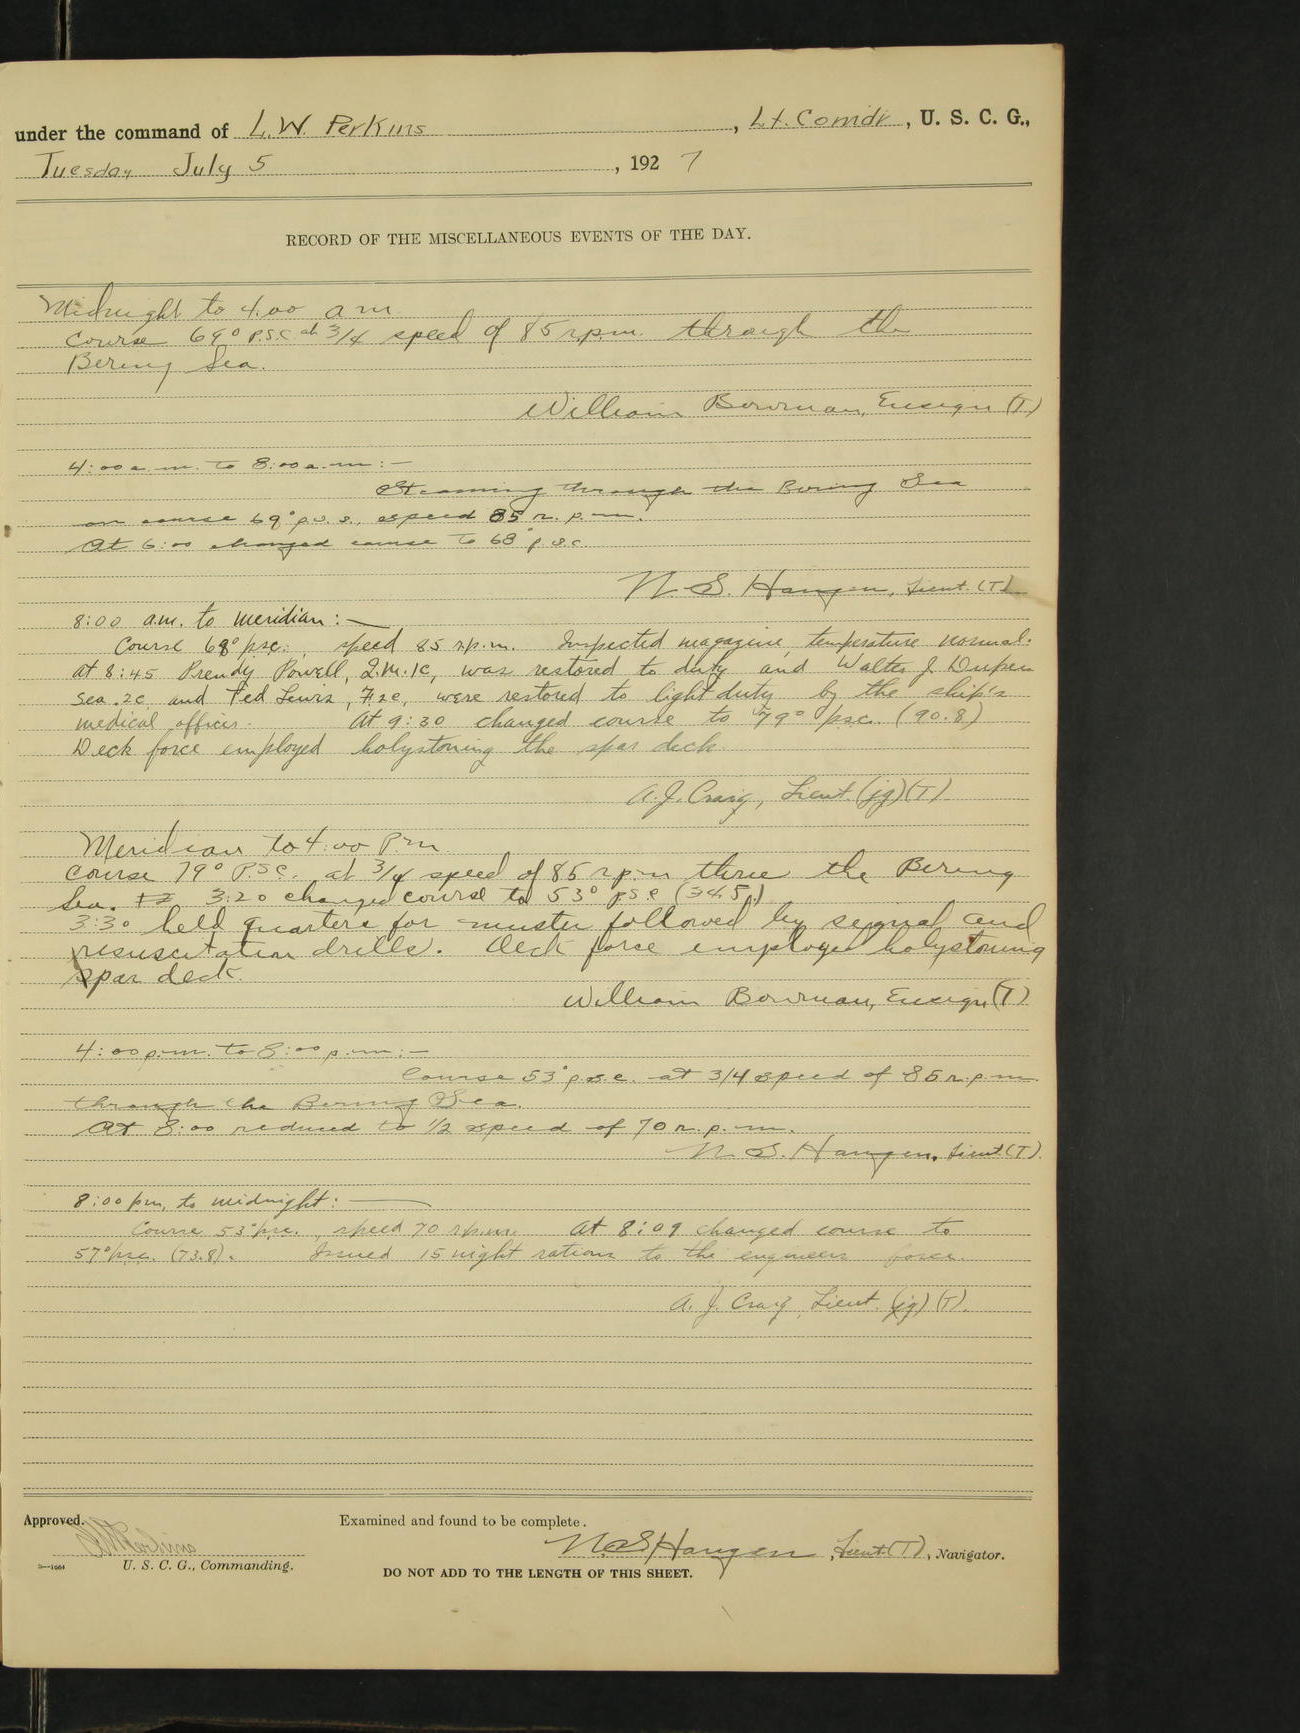 under the command of L. W. Perkins, Lt. Comdr, U. S. C. G.,
Tuesday July 5, 1927
RECORD OF THE MISCELLANEOUS EVENTS OF THE DAY.
Midnight to 4:00 a m
Course 69° p.s.c. at 3/4 speed of 85 r.p.m. through the
Bering Sea.
William Bowman, Ensign (T)
4:00 a.m. to 8:00 a.m:-
Steaming through the Bering Sea
on course 69° p.s.c., speed 85 r.p.m.
At 6:00 changed course to 68° p.s.c.
N. S. Haugen, Lieut. (T)
8:00 a.m. to meridian:-
Course 68° psc., speed 85 r.p.m. Inspected magazine, temperature normal.
at 8:45 Powell, Q.M.1c, was restored to duty and Walter J.
Sea.2c, and Ted Lewis, F2c, were restored to light duty by the ship's
medical officer. At 9:30 changed course to 79° psc. (90.8)
Deck force employed holystoning the spar deck.
A. J. Craig, Lieut. (jg) (T)
Meridian to 4:00 P.m
Course 79° P.S.C. at 3/4 speed of 85 r.p.m three the Bering
Sea. 3:20 changed course to 53° psc (34.5)
3:30 held quarters for muster followed by signal and
resuscitation drills. Deck force employed holystoning
spar deck.
William Bowman, Ensign (T)
4:00 p.m. to 8:00 p.m.:-
Course 53° p.s.c. at 3/4 speed of 85 r.p.m.
through the Bering Sea.
At 8:00 reduced to 1/2 speed of 70 r.p.m.
N. S. Haugen, Lieut (T).
8:00 pm, to midnight:-
Course 53° psc., speed 70 r.p.m. At 8:09 changed course to
57° psc. (73.8). Issued 15 night rations to the engineers force.
A. J. Craig, Lieut. (jg) (T).
Approved.
Examined and found to be complete.
L W Perkins
N. S. Haugen, Lieut (T), Navigator.
U. S. C. G., Commanding.
DO NOT ADD TO THE LENGTH OF THIS SHEET.